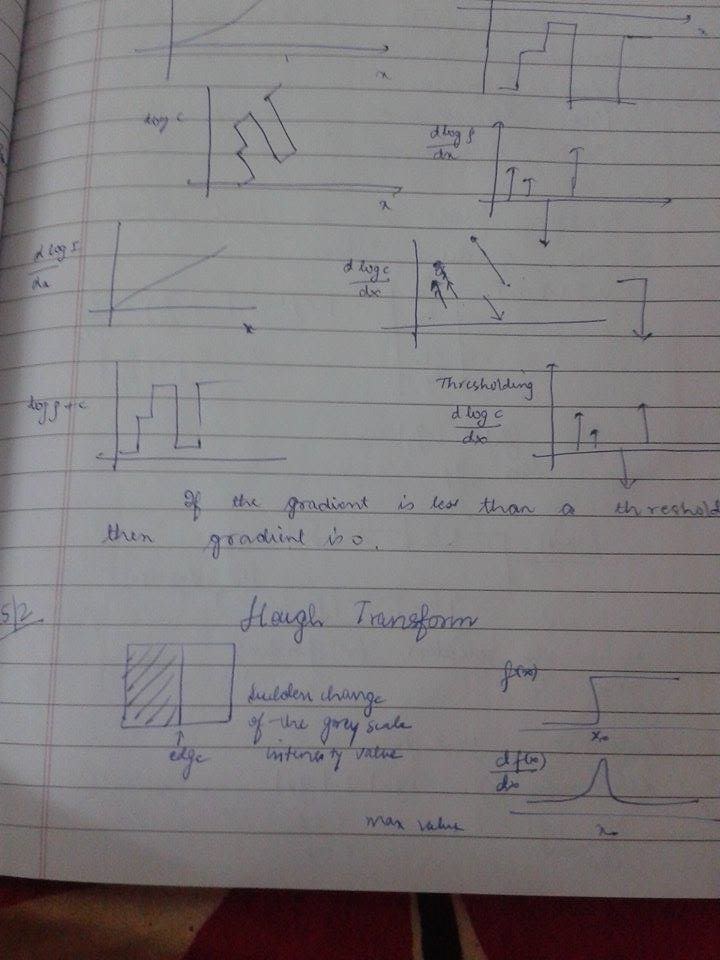 x
x
log c
x
d log ρ
dx
d log I
dx
x
d log c
dx
log ρ + c
Thresholding
d log c
dx
If the gradient is less than a threshold
then gradient is 0.
5/2
Hough Transform
sudden change
of the grey scale
intensity value
edge
f(x)
x₀
d f(x)
dx
max value
x₀